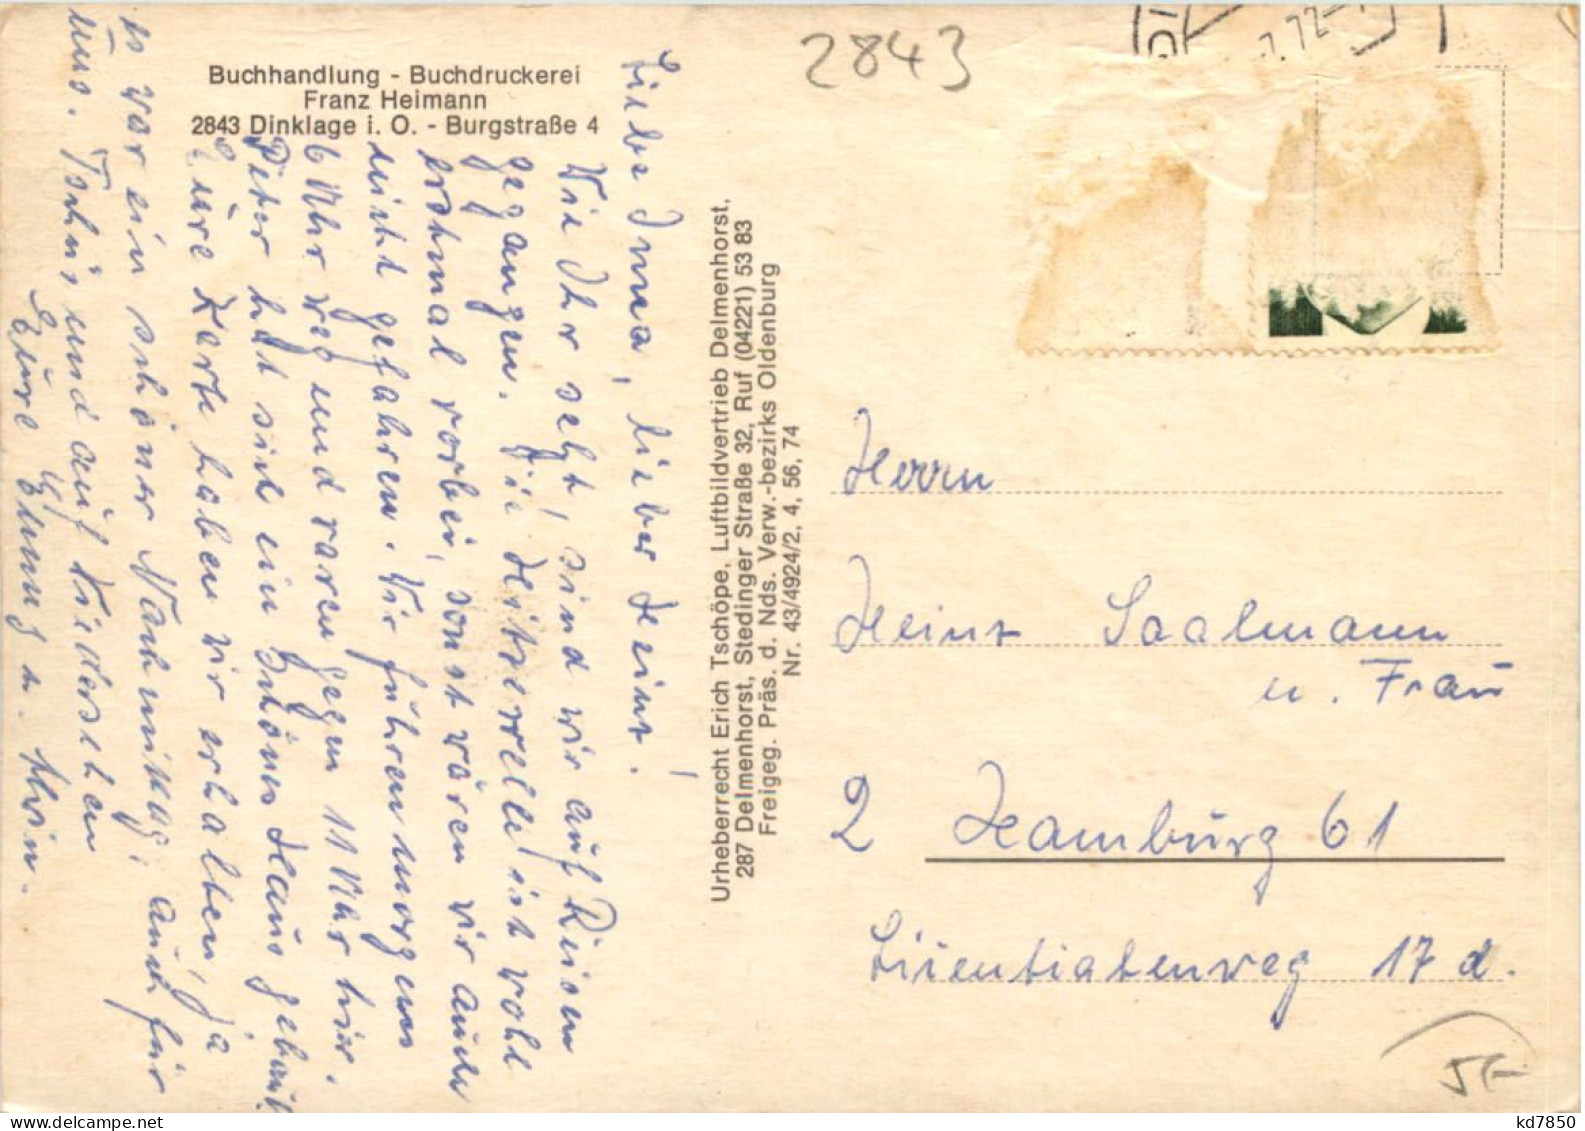 2843
7.72
Buchhandlung - Buchdruckerei
Franz Heimann
2843 Dinklage i. O. - Burgstraße 4
Liebe Irma, lieber Heinz!
Wie Ihr seht, sind wir auf Reisen
gegangen. Die Hitzewelle ist wohl
erstmal vorbei, sonst wären wir auch
nicht gefahren. Wir fuhren morgens
6 Uhr weg und waren gegen 11 Uhr hier.
Peter hat sich ein schönes Haus gebaut
Eure Karte haben wir erhalten, ja
es war ein schöner Nachmittag, auch für
uns. Tschüs und auf Wiedersehen
Eure Elung u. Alwin.
Urheberrecht Erich Tschöpe, Luftbildvertrieb Delmenhorst,
287 Delmenhorst, Stedinger Straße 32, Ruf (04221) 53 83
Freigeg. Präs. d. Nds. Verw.-bezirks Oldenburg
Nr. 43/4924/2, 4, 56, 74
Herrn
Heinz Saalmann
u. Frau
2 Hamburg 61
17 d.
kd7850